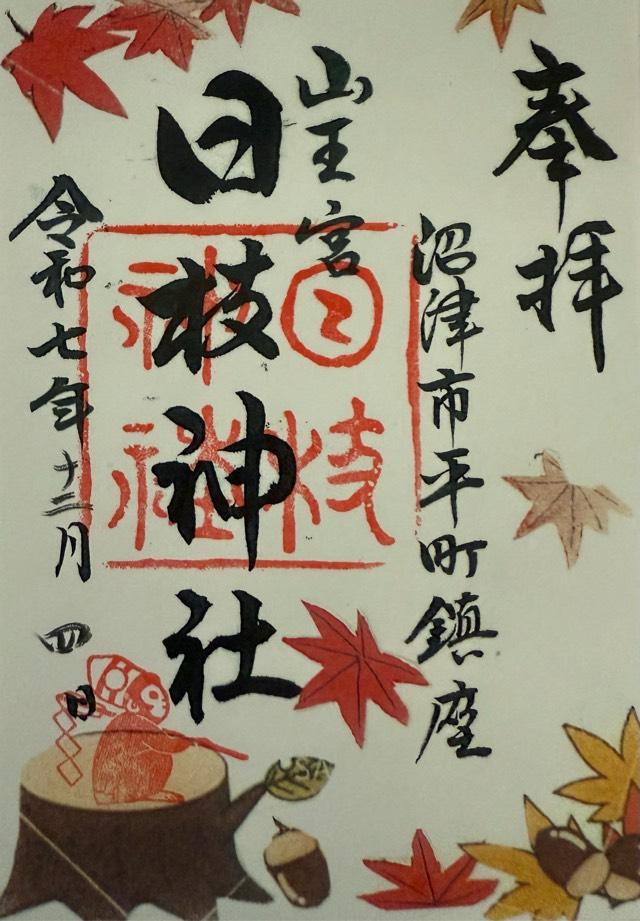 奉拝
沼津市平町鎮座
山王宮
日枝神社
日枝
神社
令和七年十二月四日